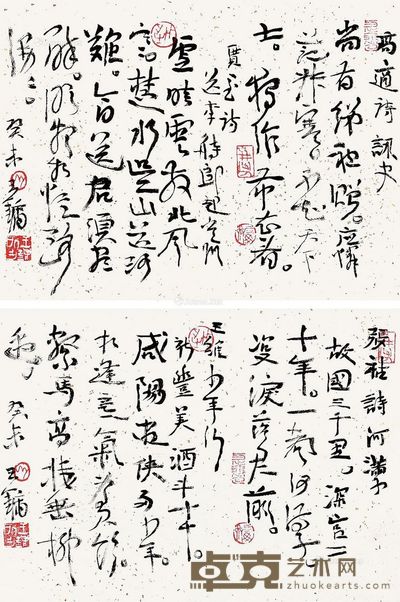 高適詩詠史
尚有綈袍贈。應憐
范叔寒。不知天下
士。猶作布衣看。
賈至詩
送李侍郎赴常州
雪晴雲散北風
寒。楚水吳山道路
難。今日送君須盡
醉。明朝相憶路
漫々。癸未王鏞
張祜詩河滿子
故國三千里。深宮二
十年。一聲何滿子。
雙淚落君前。
王維少年行
新豐美酒斗十千。
咸陽遊俠多少年。
相逢意氣為君飲。
繫馬高樓垂柳
邊。癸未王鏞
卓克艺术网
zhuokearts.com